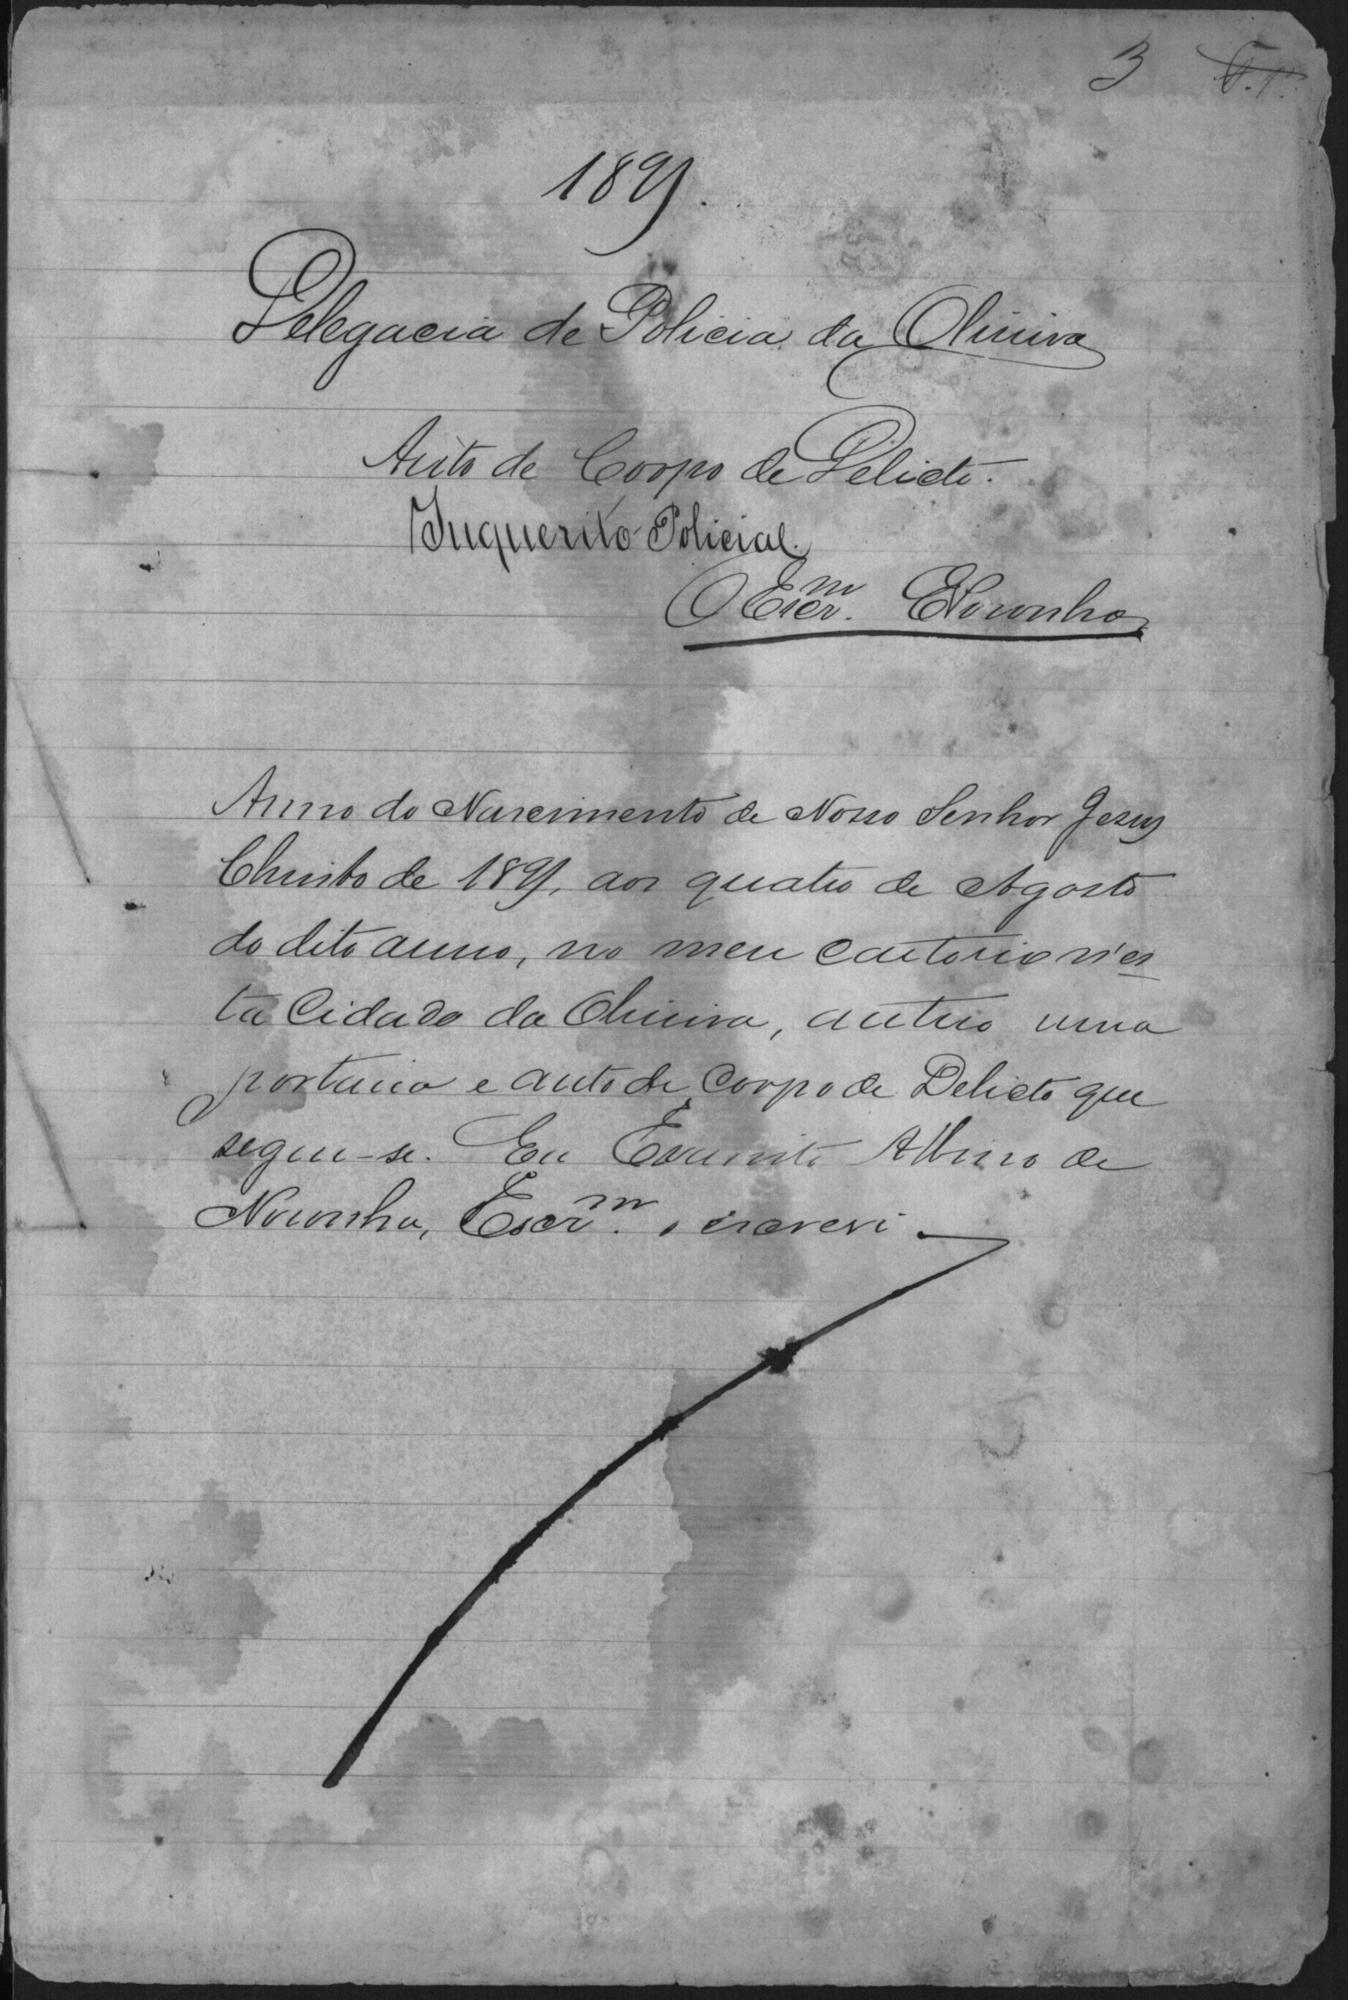 3
1891.
Delegacia de Policia da Oliveira
Auto de Corpo de Delicto.
Inquerito Policial.
O Escr.m ENoronha
Anno do Nascimento de Nosso Senhor Jesus
Christo de 1891, aos quatro de Agosto
do dito anno, no meu cartorio n'es
ta Cidade da Oliveira, autuo uma
portaria e auto de Corpo de Delicto que
segue-se. Eu Evaristo Albino de
Noronha, Escr.m o escrevi.